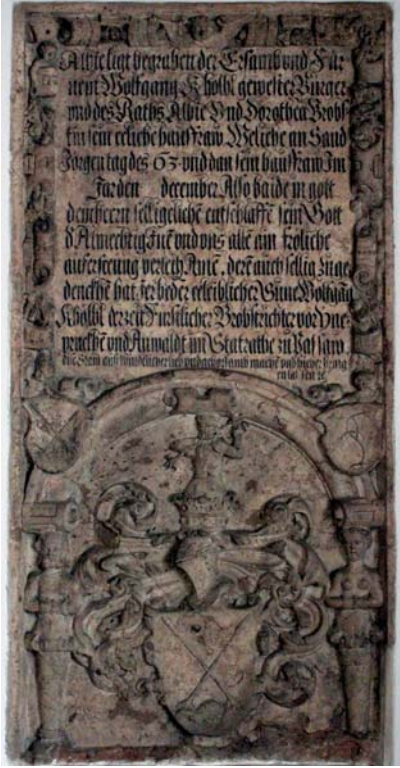 Alhie ligt begraben der Ersamb vnd Für
nem Wolfgang Kholbl gewester Burger
vnd des Raths Alhie Vnd Dorothea Brobs
tin sein eeliche hausfraw Welliche an Sand
Jorgen tag des 63 vnd dan sein hausfraw Im
Jar den december Also baide in gott
dem herrn selligeliche entschlaffe sein Gott
d Almechtig sue vnd vns alle ain froliche
aufersteung verleich Ame. dere auch sellig zu ge
denckhe hat Jer beder eeleiblicher Sune Wolfgag
Kholbl derzeit Furstlicher Brobstrichter vor Yne
pruckhe vnd Anwaldt im Statrathe zu Passaw
die Stain aus vnd hieher